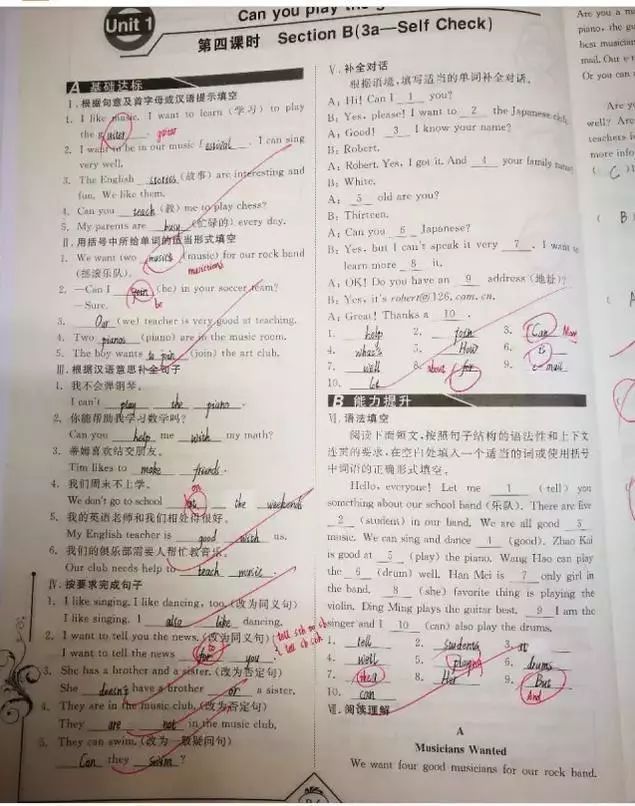 Unit 1
Can you play the
第四课时 Section B(3a—Self Check)
A 基础达标
Ⅰ. 根据句意及首字母或汉语提示填空
1. I like music. I want to learn (学习) to play
the g . guitar
2. I want to be in our music f estival . I can sing
very well.
3. The English stories (故事) are interesting and
fun. We like them.
4. Can you teach (教) me to play chess?
5. My parents are busy (忙碌的) every day.
Ⅱ. 用括号中所给单词的适当形式填空
1. We want two musics (music) for our rock band
(摇滚乐队). musicians
2. —Can I join (be) in your soccer team?
—Sure. be
3. Our (we) teacher is very good at teaching.
4. Two pianos (piano) are in the music room.
5. The boy wants to join (join) the art club.
Ⅲ. 根据汉语意思补全句子
1. 我不会弹钢琴。
I can't play the piano .
2. 你能帮助我学习数学吗?
Can you help me with my math?
3. 蒂姆喜欢结交朋友。
Tim likes to make friends .
4. 我们周末不上学。
on
We don't go to school the weekend
5. 我的英语老师和我们相处得很好。
My English teacher is good with us.
6. 我们的俱乐部需要人帮忙教音乐。
Our club needs help to teach music .
Ⅳ. 按要求完成句子
1. I like singing. I like dancing, too. (改为同义句)
I like singing. I also like dancing.
2. I want to tell you the news. (改为同义句) tell sth to sb
I want to tell the news for you . to tell sb sth
3. She has a brother and a sister. (改为否定句)
She doesn't have a brother or a sister.
4. They are in the music club. (改为否定句)
They are not in the music club.
5. They can swim. (改为一般疑问句)
Can they swim ?
Ⅴ. 补全对话
根据语境,填写适当的单词补全对话。
A: Hi! Can I 1 you?
B: Yes, please! I want to 2 the Japanese club.
A: Good! 3 I know your name?
B: Robert.
A: Robert. Yes, I got it. And 4 your family name
B: White.
A: 5 old are you?
B: Thirteen.
A: Can you 6 Japanese?
B: Yes, but I can't speak it very 7 . I want to
learn more 8 it.
A: OK! Do you have an 9 address (地址)?
B: Yes, it's robert@126.com.cn.
A: Great! Thanks a 10 .
1. help 2. join 3. Can May
4. what's 5. How 6. is
7. well 8. about for 9. e-mail
10. lot
B 能力提升
Ⅵ. 语法填空
阅读下面短文,按照句子结构的语法性和上下文
连贯的要求,在空白处填入一个适当的词或使用括号
中词语的正确形式填空。
Hello, everyone! Let me 1 (tell) you
something about our school band (乐队). There are five
2 (student) in our band. We are all good 3
music. We can sing and dance 4 (good). Zhao Kai
is good at 5 (play) the piano. Wang Hao can play
the 6 (drum) well. Han Mei is 7 only girl in
the band. 8 (she) favorite thing is playing the
violin. Ding Ming plays the guitar best. 9 I am the
singer and I 10 (can) also play the drums.
1. tell 2. students 3. at
4. well 5. 6. drums
7. the 8. Her 9. But And
10. can
Ⅶ. 阅读理解
A
Musicians Wanted
We want four good musicians for our rock band.
Are you a mu
piano, the gu
best musician
mail. Our e-
Or you can
Are yo
well? Are
teachers
more info
( C )
( B